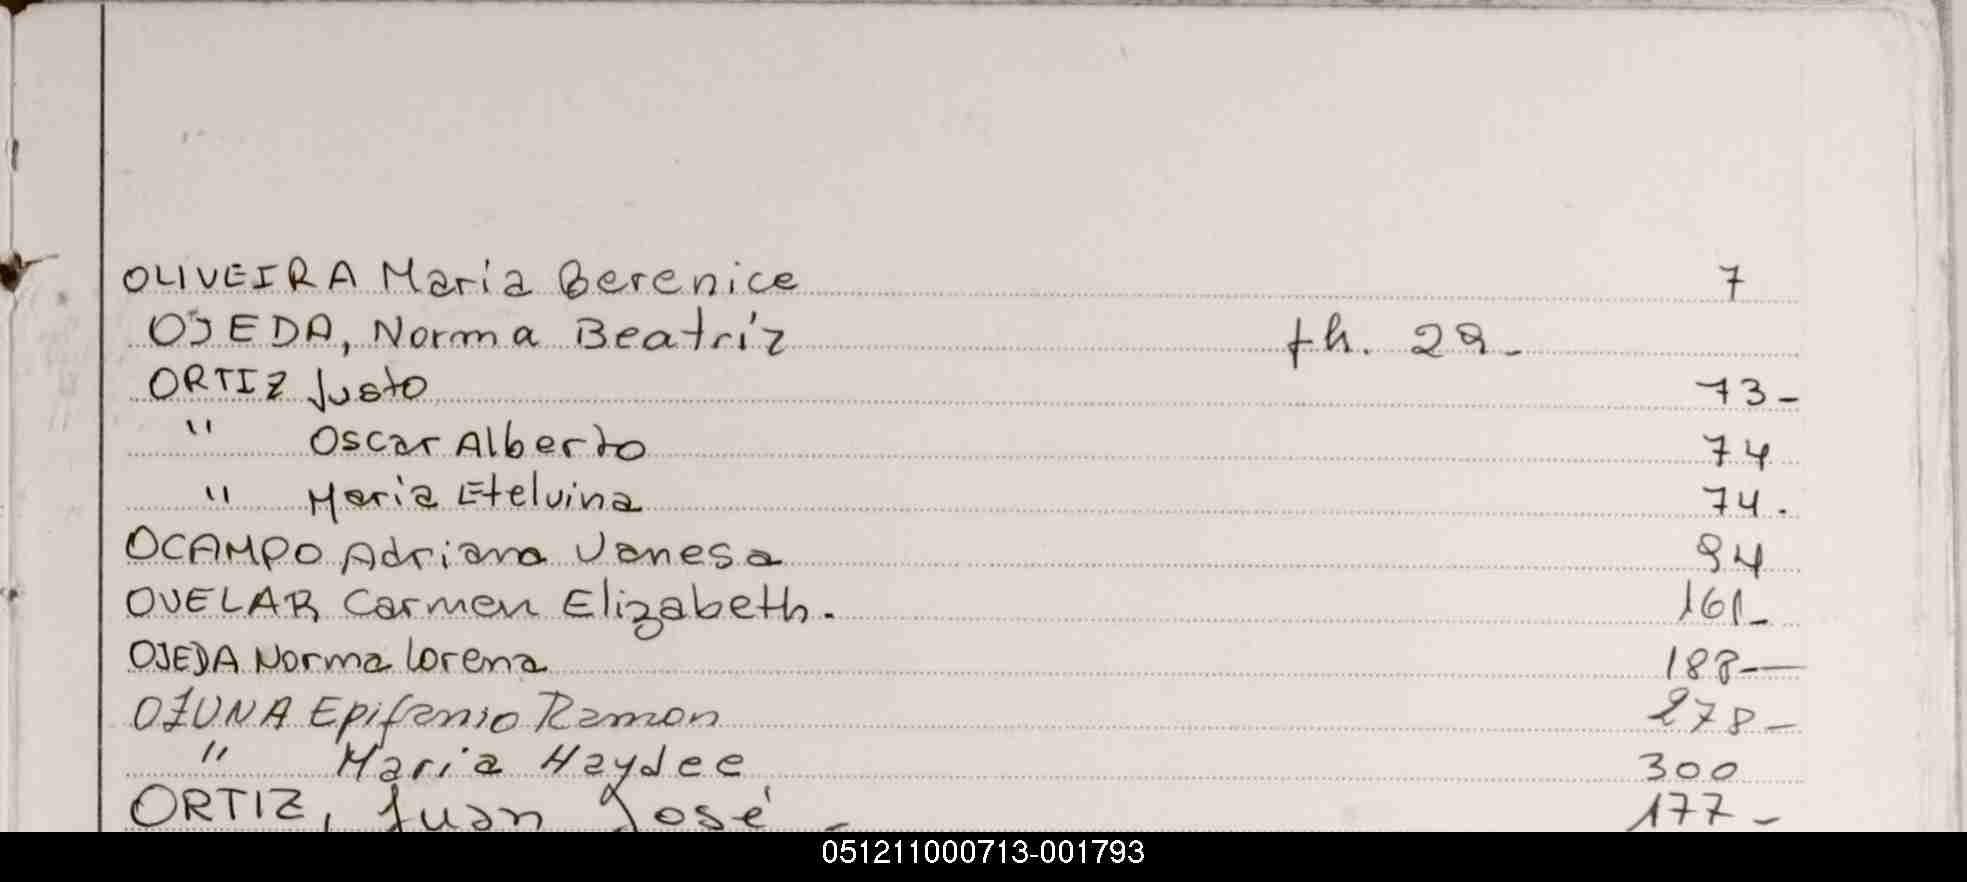 OLIVEIRA Maria Berenice 7
OJEDA, Norma Beatríz fh. 29-
ORTIZ Justo 73-
" Oscar Alberto 74
" Maria Etelvina 74.
OCAMPO Adriana Vanesa 94
OVELAR Carmen Elizabeth. 161-
OJEDA Norma Lorena 188-
OZUNA Epifanio Ramon 278-
" Maria Haydee 300
ORTIZ, Juan José - 177-
051211000713-001793